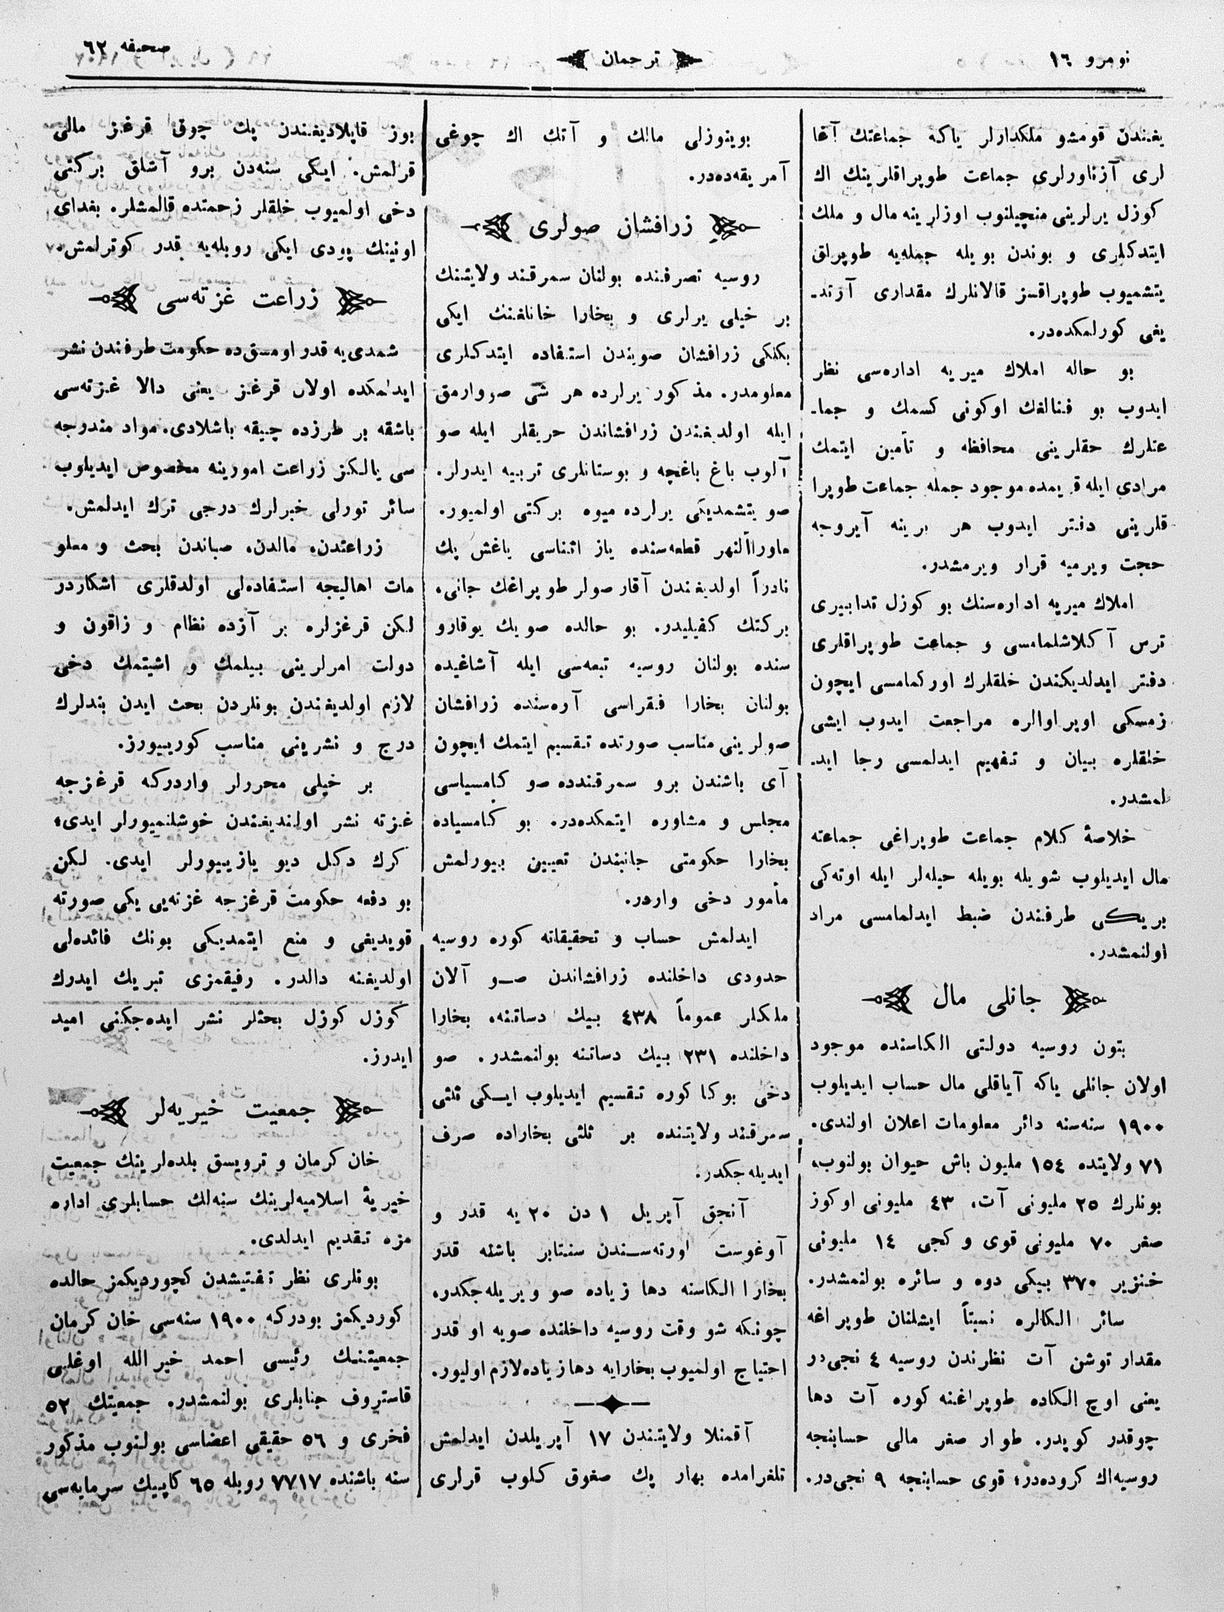 نومرو ١٦
ترجمان
صحيفه ٦٢
يغندن قومشو ملكدارلر ياكه جماعتك آغا
لرى آزناورلرى جماعت طوپراقلرينك اك
كوزل يرلرينى منچيلنوب اوزلرينه مال و ملك
ايتدكلرى و بوندن بويله جمله‌يه طوپراق
يتشميوب طوپراقسز قالانلرك مقدارى آرتد۔
يغى كورلمكده‌در.
بو حاله املاك ميريه اداره‌سى نظر
ايدوب بو فنالغك اوكونى كسمك و جما۔
عتلرك حقلرينى محافظه و تأمين ايتمك
مرادى ايله قيمده موجود جمله جماعت طوپرا
قلرينى دفتر ايدوب هر برينه آيروجه
حجت ويرميه قرار ويرمشدر.
املاك ميريه اداره‌سنك بو كوزل تدابيرى
ترس آكلاشلمامسى و جماعت طوپراقلرى
دفتر ايدلديكندن خلقلرك اوركمامسى ايچون
زمسكى اوپراوالره مراجعت ايدوب ايشى
خلقلره بيان و تفهيم ايدلمسى رجا ايد۔
لمشدر.
خلاصۀ كلام جماعت طوپراغى جماعته
مال ايديلوب شويله بويله حيله‌لر ايله اوته‌كى
بريكى طرفندن ضبط ايدلمامسى مراد
اولنمشدر.
جانلى مال
بتون روسيه دولتى الكاسنده موجود
اولان جانلى ياكه آياقلى مال حساب ايديلوب
١٩٠٠ سنه‌سنه دائر معلومات اعلان اولندى.
٧١ ولايتده ١٥٤ مليون باش حيوان بولنوب،
بونلرك ٢٥ مليونى آت، ٤٣ مليونى اوكوز
صغر ٧٠ مليونى قوى و كجى ١٤ مليونى
خنزير ٣٧٠ بيكى دوه و سائره بولنمشدر.
سائر الكالره نسبتاً ايشلنان طوپراغه
مقدار توشن آت نظرندن روسيه ٤ نجى‌در
يعنى اوچ الكاده طوپراغنه كوره آت دها
چوقدر كويدر. طوار صغر مالى حسابنجه
روسيه‌اك كروده‌در؛ قوى حسابنجه ٩ نجى‌در.
بوينوزلى مالك و آتك اك چوغى
آمريقه‌ده‌در.
زرافشان صولرى
روسيه تصرفنده بولنان سمرقند ولايتنك
بر خيلى يرلرى و بخارا خانلغنك ايكى
بكلكى زرافشان صويندن استفاده ايتدكلرى
معلومدر. مذكور يرلرده هر شى صووارمق
ايله اولديغندن زرافشاندن حريقلر ايله صو
آلوب باغ باغچه و بوستانلرى تربيه ايدرلر.
صو يتشمديكى يرلرده ميوه بركتى اولميور.
ماوراالنهر قطعه‌سنده ياز اثناسى ياغش پك
نادراً اولديغندن آقار صولر طوپراغك جانى،
بركتك كفيليدر. بو حالده صويك يوقارو
سنده بولنان روسيه تبعه‌سى ايله آشاغيده
بولنان بخارا فقراسى آره‌سنده زرافشان
صولرينى مناسب صورتده تقسيم ايتمك ايچون
آى باشندن برو سمرقندده صو كامسياسى
مجلس و مشاوره ايتمكده‌در. بو كامسياده
بخارا حكومتى جانبندن تعيين بيورلمش
مأمور دخى واردر.
ايدلمش حساب و تحقيقاته كوره روسيه
حدودى داخلنده زرافشاندن صو آلان
ملكلر عموماً ٤٣٨ بيك دساتنه، بخارا
داخلنده ٢٣١ بيك دساتنه بولنمشدر. صو
دخى بوكا كوره تقسيم ايديلوب ايكى ثلثى
سمرقند ولايتنده بر ثلثى بخاراده صرف
ايديله‌جكدر.
آنجق آپريل ١ دن ٢٠ يه قدر و
آوغوست اورته‌سندن سنتابر باشنه قدر
بخارا الكاسنه دها زياده صو ويريله‌جكدر،
چونكه شو وقت روسيه داخلنده صويه او قدر
احتياج اولميوب بخارايه دها زياده‌لازم اوليور.
آقمنلا ولايتندن ١٧ آپريلدن ايدلمش
تلغرامده بهار پك صغوق كلوب قرلرى
بوز قاپلاديغندن پك چوق قرغز مالى
قرلمش. ايكى سنه‌دن برو آشلق بركتى
دخى اولميوب خلقلر زحمتده قالمشلر. بغداى
اونينك پودى ايكى روبله‌يه قدر كوترلمش.
زراعت غزته‌سى
شمدى‌يه قدر اومسق‌ده حكومت طرفندن نشر
ايدلمكده اولان قرغز يعنى دالا غزته‌سى
باشقه بر طرزده چيقه باشلادى. مواد مندوجه
سى يالكز زراعت امورينه مخصوص ايديلوب
سائر تورلى خبرلرك درجى ترك ايدلمش.
زراعتدن، مالدن، صباندن بحث و معلو
مات اهاليجه استفاده‌لى اولدقلرى اشكاردر
لكن قرغزلره بر آزده نظام و زاقون و
دولت امرلرينى بيلمك و اشيتمك دخى
لازم اولديغندن بونلردن بحث ايدن بندلرك
درج و نشرينى مناسب كورييورز.
بر خيلى محررلر واردركه قرغزجه
غزته نشر اولنديغندن خوشلنميورلر ايدى؛
كرك دكل ديو يازييورلر ايدى. لكن
بو دفعه حكومت قرغزجه غزته‌يى يكى صورته
قويديغى و منع ايتمديكى بونك فائده‌لى
اولديغنه دالدر. رفيقمزى تبريك ايدرك
كوزل كوزل بحثلر نشر ايده‌جكنى اميد
ايدرز.
جمعيت خيريه‌لر
خان كرمان و ترويسق بلده‌لرينك جمعيت
خيريۀ اسلاميه‌لرينك سنه‌لك حسابلرى اداره
مزه تقديم ايدلدى.
بونلرى نظر تفتيشدن كچورديكمز حالده
كورديكمز بودركه ١٩٠٠ سنه‌سى خان كرمان
جمعيتنيك رئيسى احمد خيرالله اوغلى
قاستروف جنابلرى بولنمشدر. جمعيتك ٥٢
فخرى و ٥٦ حقيقى اعضاسى بولنوب مذكور
سنه باشنده ٧٧١٧ روبله ٦٥ كاپيك سرمايه‌سى